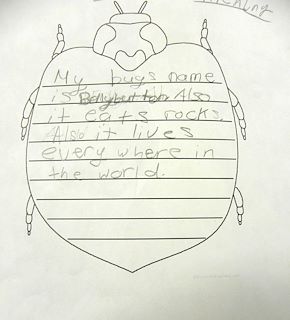 My bugs name
is Bellybutton Also
it eats rocks.
Also it lives
every where in
the world.